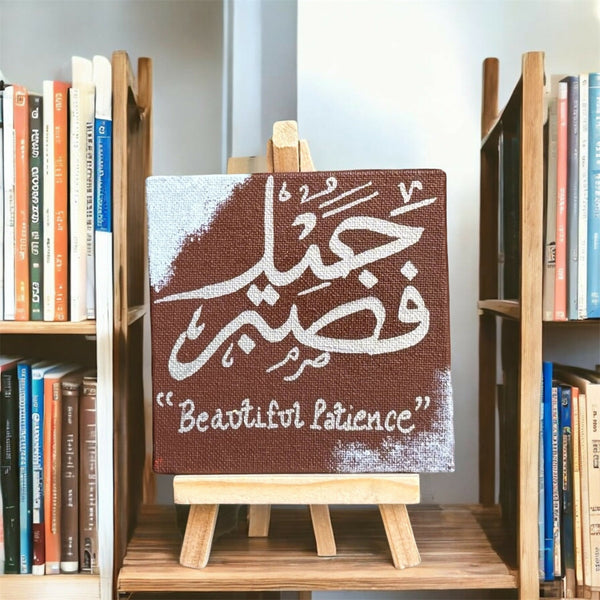 فصبر
جميل
“Beautiful Patience”